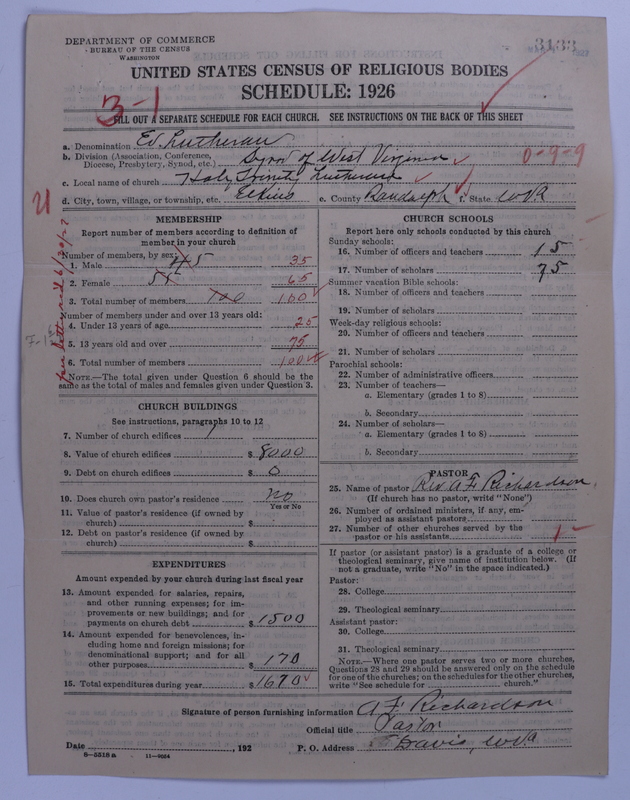 DEPARTMENT OF COMMERCE
BUREAU OF THE CENSUS
WASHINGTON
3133
UNITED STATES CENSUS OF RELIGIOUS BODIES
SCHEDULE: 1926
3-1
FILL OUT A SEPARATE SCHEDULE FOR EACH CHURCH. SEE INSTRUCTIONS ON THE BACK OF THIS SHEET
a. Denomination Ev. Lutheran
b. Division (Association, Conference, Diocese, Presbytery, Synod, etc.) Synod of West Virginia 0-9-9
c. Local name of church Holy Trinity Lutheran
d. City, town, village, or township, etc. Elkins e. County Randolph f. State W Va
21
MEMBERSHIP
Report number of members according to definition of member in your church
Number of members, by sex:
1. Male 45 35
2. Female 55 65
3. Total number of members 100 100
Number of members under and over 13 years old:
4. Under 13 years of age 25
5. 13 years old and over 75
6. Total number of members 100
NOTE.—The total given under Question 6 should be the same as the total of males and females given under Question 3.
CHURCH BUILDINGS
See instructions, paragraphs 10 to 12
7. Number of church edifices 1
8. Value of church edifices $ 8000
9. Debt on church edifices $ 0
10. Does church own pastor's residence No
Yes or No
11. Value of pastor's residence (if owned by church) $
12. Debt on pastor's residence (if owned by church) $
EXPENDITURES
Amount expended by your church during last fiscal year
13. Amount expended for salaries, repairs, and other running expenses; for improvements or new buildings; and for payments on church debt $ 1500
14. Amount expended for benevolences, including home and foreign missions; for denominational support; and for all other purposes $ 170
15. Total expenditures during year $ 1670
CHURCH SCHOOLS
Report here only schools conducted by this church
Sunday schools:
16. Number of officers and teachers 15
17. Number of scholars 75
Summer vacation Bible schools:
18. Number of officers and teachers
19. Number of scholars
Week-day religious schools:
20. Number of officers and teachers
21. Number of scholars
Parochial schools:
22. Number of administrative officers
23. Number of teachers—
a. Elementary (grades 1 to 8)
b. Secondary
24. Number of scholars—
a. Elementary (grades 1 to 8)
b. Secondary
PASTOR
25. Name of pastor Rev. A F Richardson
(If church has no pastor, write "None")
26. Number of ordained ministers, if any, employed as assistant pastors
27. Number of other churches served by the pastor or his assistants 1
If pastor (or assistant pastor) is a graduate of a college or theological seminary, give name of institution below. (If not a graduate, write "No" in the space indicated.)
Pastor:
28. College
29. Theological seminary
Assistant pastor:
30. College
31. Theological seminary
NOTE.—Where one pastor serves two or more churches, Questions 28 and 29 should be answered only on the schedule for one of the churches; on the schedules for the other churches, write "See schedule for church."
Signature of person furnishing information A F Richardson
Official title Pastor
Date , 192 P. O. Address Davis, W Va
8—5318 a 11—9664